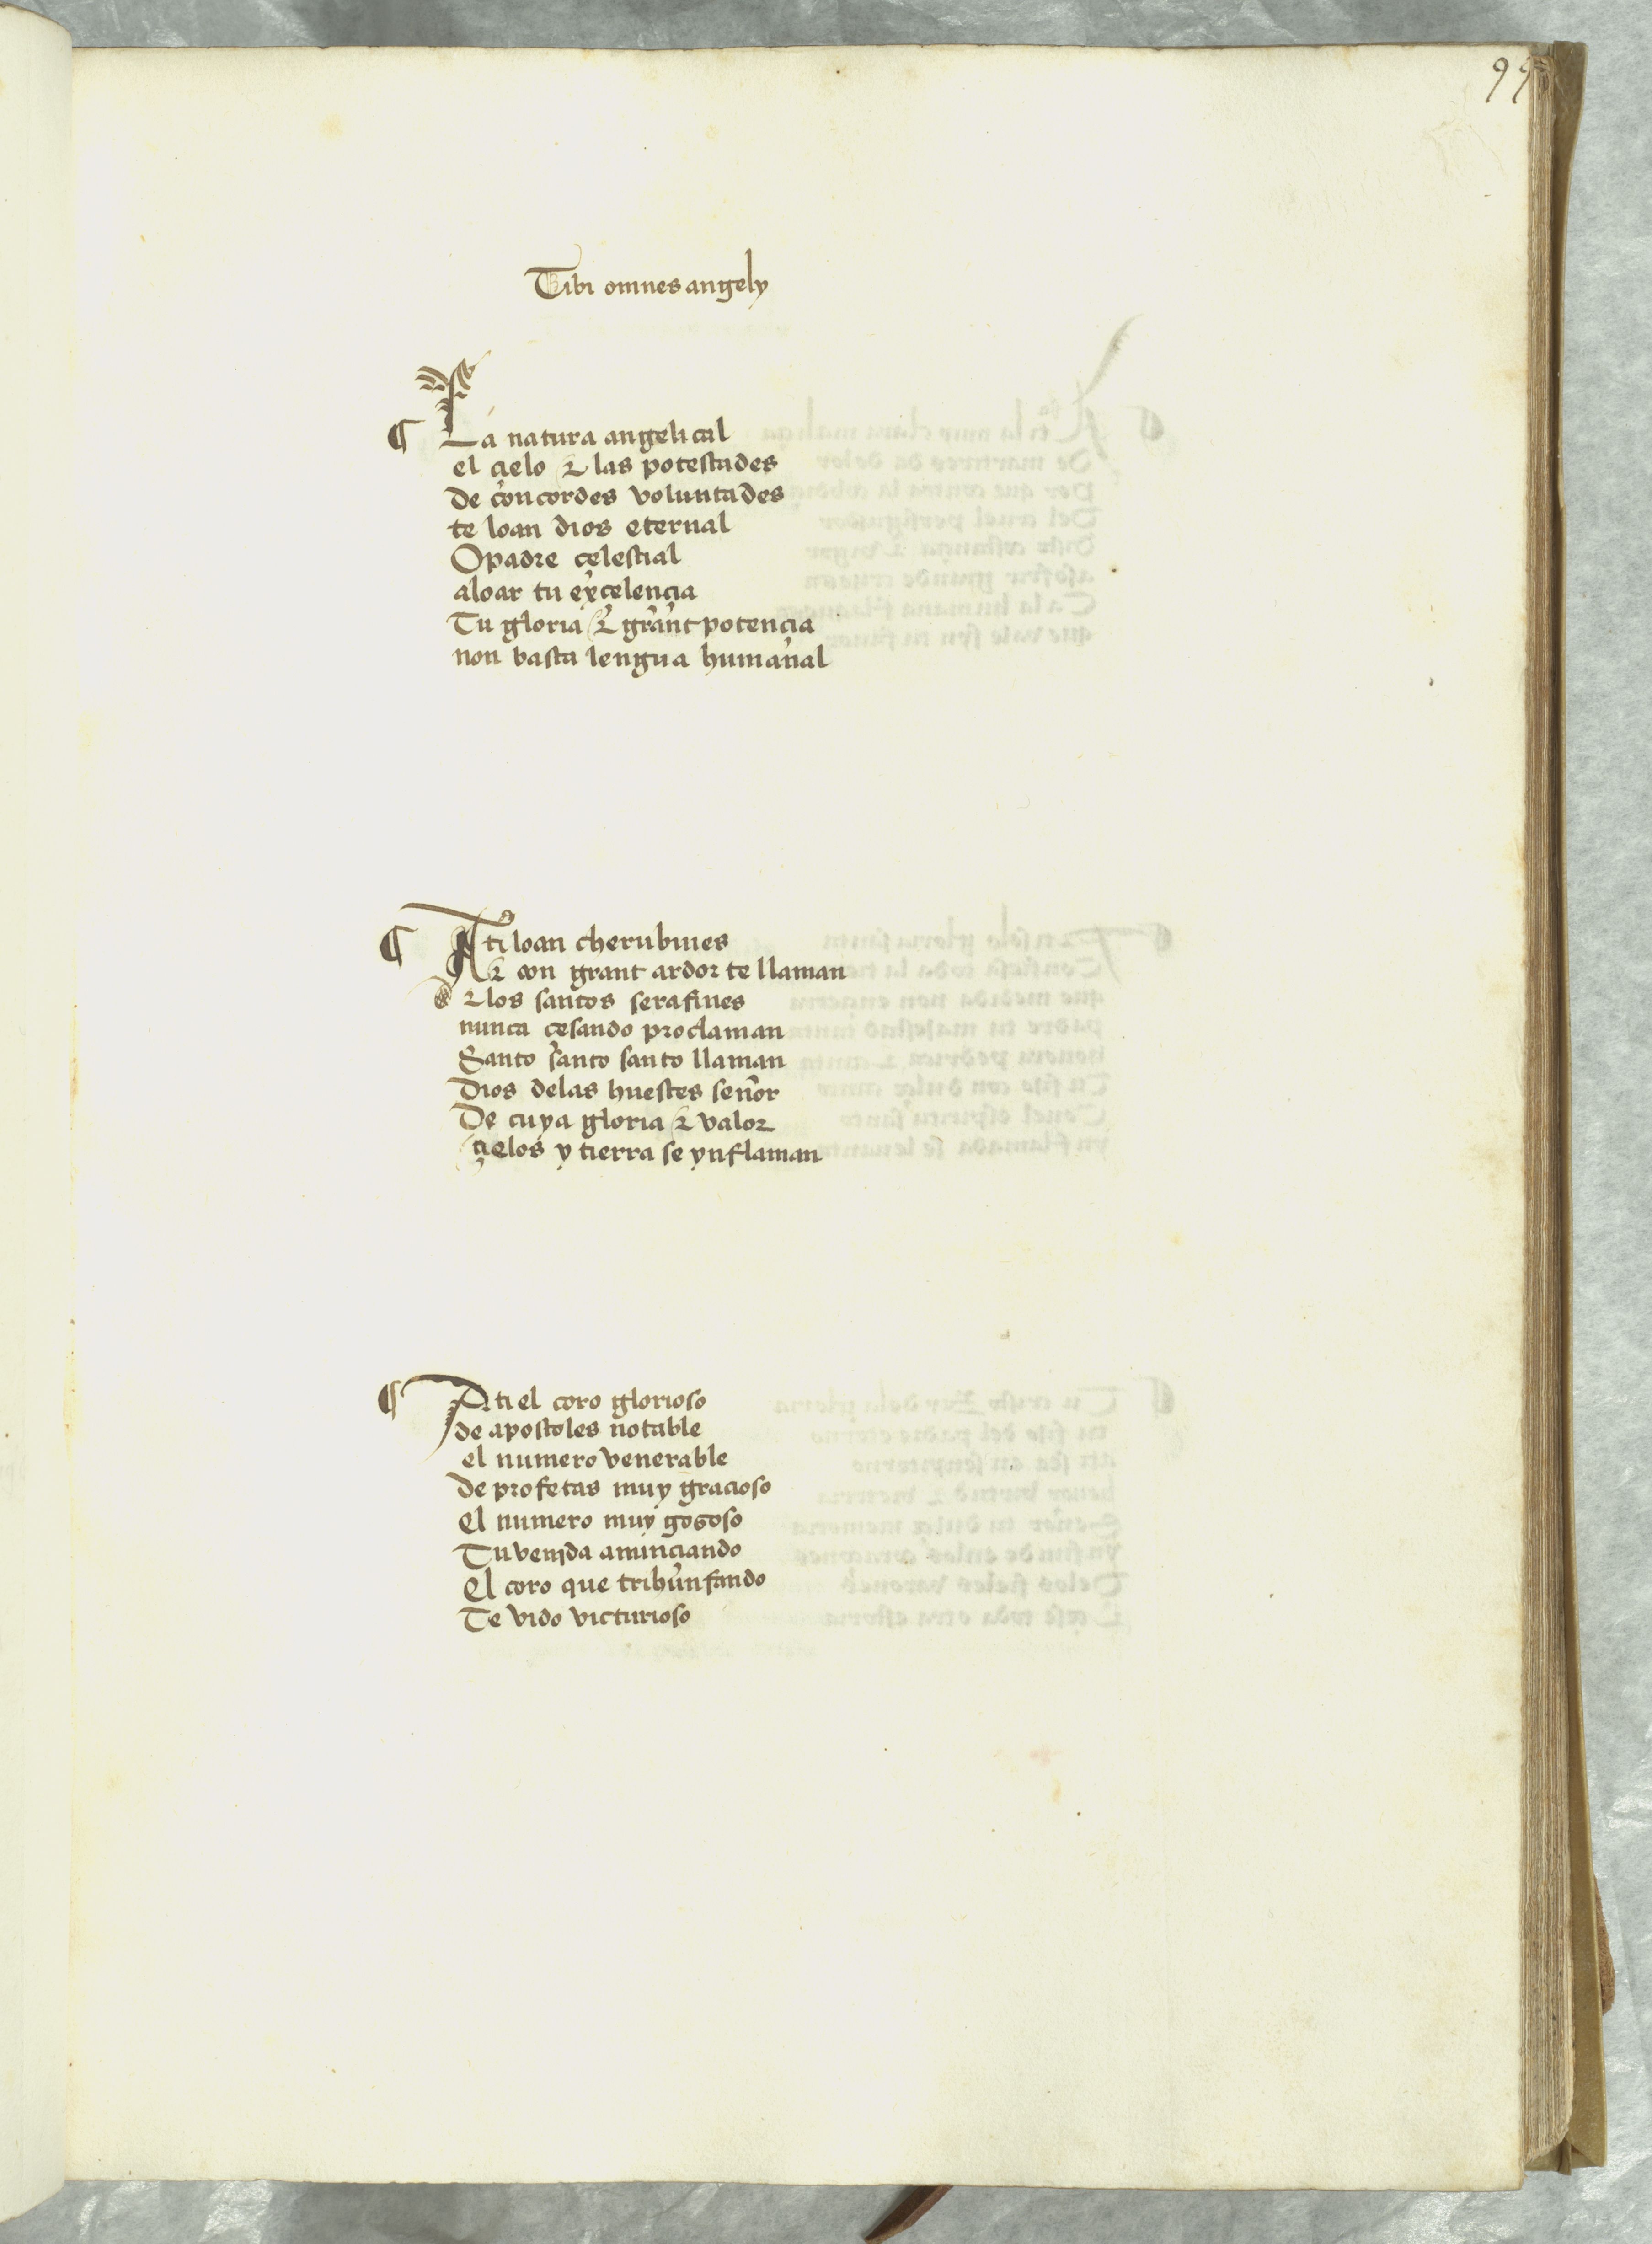 99
Tibi omnes angely
¶ La natura angelical
el cielo & las potestades
de concordes voluntades
te loan dios eternal
O padre çelestial
aloar tu exçelencia
Tu gloria & grant potencia
non basta lengua humanal
¶ A ti loan cherubines
& con grant ardor te llaman
& los santos serafines
nunca çesando proclaman
Santo santo santo llaman
Dios delas huestes señor
De cuya gloria & valor
çielos y tierra se ynflaman
¶ A ti el coro glorioso
de apostoles notable
el numero venerable
de profetas muy gracioso
el numero muy gozoso
Tu venida anunciando
El coro que trihunfando
Te vido victurioso